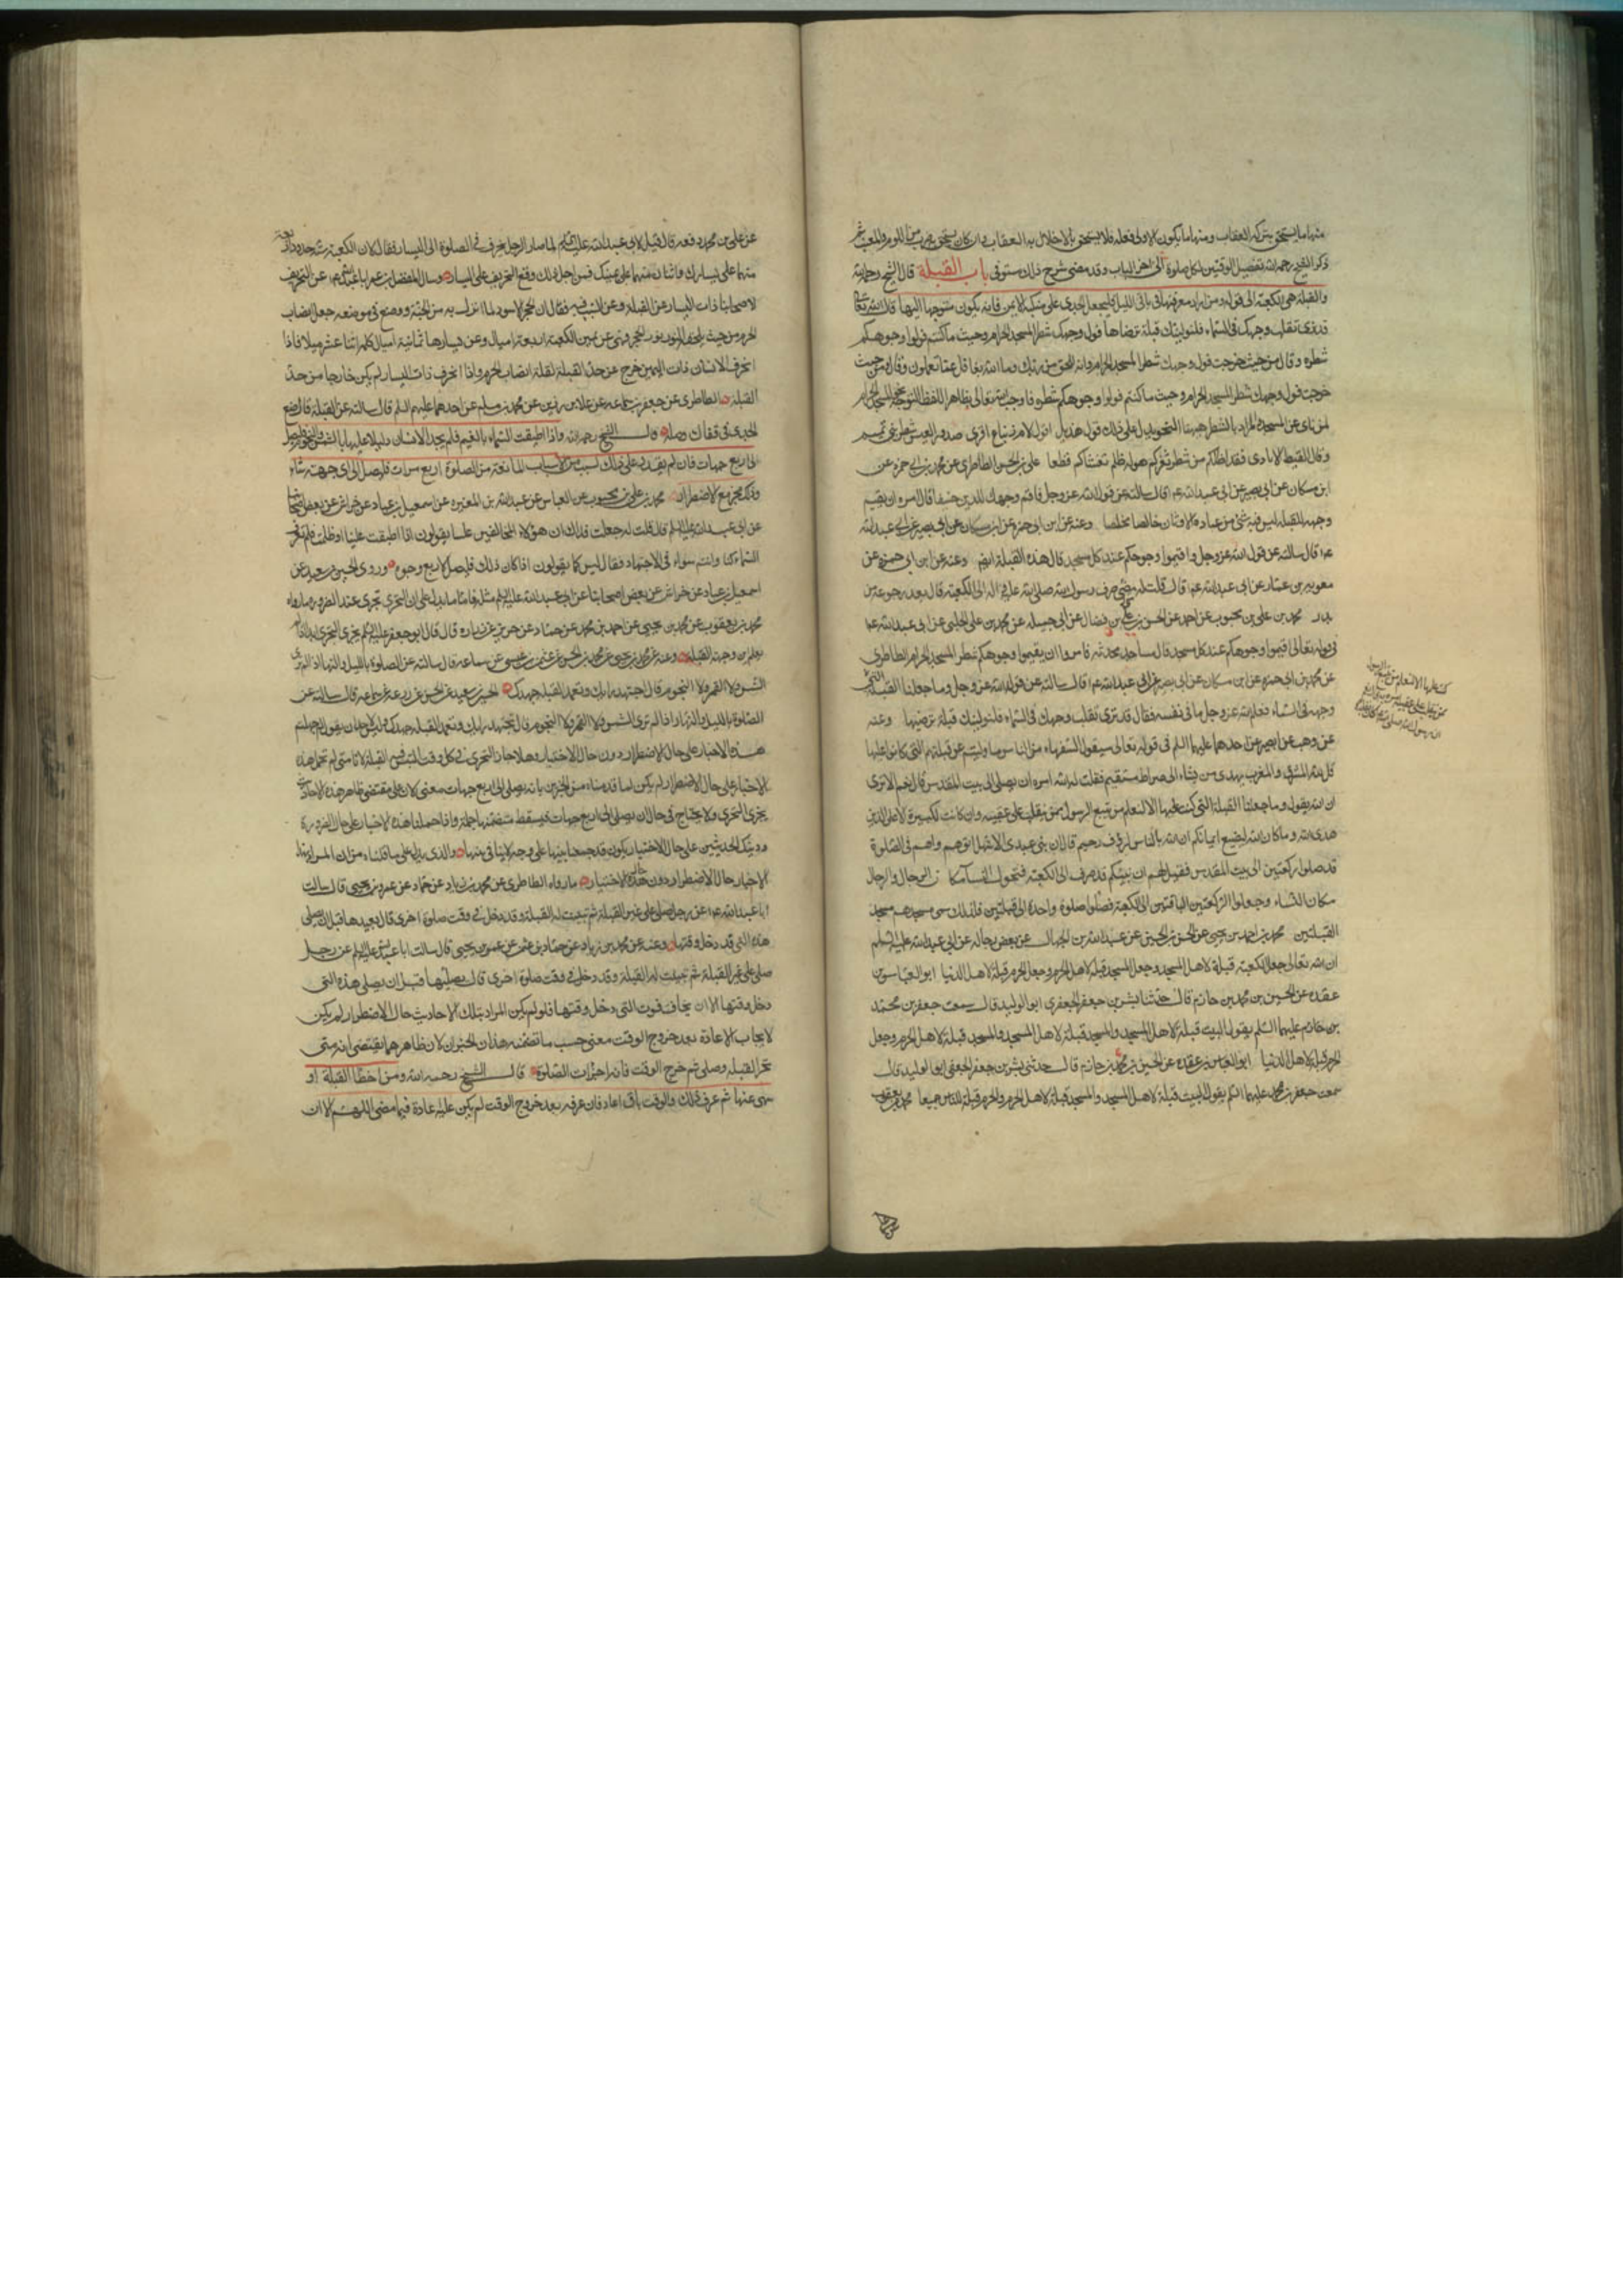 منها ما يستحق بتركه العقاب ومنها ما يكون الاولى فعله فلا يستحق بالاخلال به العقاب وان كان يستحق به ضرب من اللوم والعتب ثم
ذكر الشيخ رحمه الله تفصيل الوقتين لكل صلوة الى اخر الباب وقد مضى شرح ذلك مستوفى باب القبلة قال الشيخ رحمه الله
والقبلة هي الكعبة الى قوله ومن اراد معرفتها في باقى الليل فليجعل الجدى على منكبه الايمن فانه يكون متوجها اليها قال الله تعالى
قد نرى تقلب وجهك في السماء فلنولينك قبلة ترضاها فول وجهك شطر المسجد الحرام وحيث ما كنتم فولوا وجوهكم
شطره وقال من حيث خرجت فول وجهك شطر المسجد الحرام وانه للحق من ربك وما الله بغافل عما تعملون وقال ومن حيث
خرجت فول وجهك شطر المسجد الحرام وحيث ما كنتم فولوا وجوهكم شطره فاوجب الله تعالى بظاهر اللفظ التوجه نحو المسجد الحرام
لمن نأى عن المسجد والمراد بالشطر ههنا النحو يدل على ذلك قول هذيل اقول لام زنباع اقيمي صدور العيس شطر بني تميم
وقال لقيط الايادى فقد اظلكم من شطر ثغركم هول له ظلم تغشاكم قطعا على بن الحسن الطاطرى عن محمد بن ابي حمزه عن
ابن مسكان عن ابي بصير عن ابي عبد الله عم قال سالته عن قول الله عز وجل فاقم وجهك للدين حنيفا قال امره ان يقيم
وجهه للقبلة ليس فيه شئ من عبادة الاوثان خالصا مخلصا وعنه عن ابن ابي حمزه عن ابن مسكان عن ابي بصير عن ابي عبد الله
عم قال سالته عن قول الله عز وجل واقيموا وجوهكم عند كل مسجد قال هذه القبلة ايضا وعنه عن ابن ابي حمزه عن
معويه بن عمار عن ابى عبد الله عم قال قلت له متى صرف رسول الله صلى الله عليه واله الى الكعبة قال بعد رجوعه من
بدر محمد بن على بن محبوب عن احمد عن الحسن بن على بن فضال عن ابي جميله عن محمد بن على الحلبى عن ابى عبد الله عم
في قوله تعالى اقيموا وجوهكم عند كل مسجد قال مساجد محدثه فامروا ان يقيموا وجوهكم شطر المسجد الحرام الطاطرى
عن محمد بن ابى حمزه عن ابن مسكان عن ابى بصير عن ابي عبد الله عم قال سالته عن قول الله عز وجل وما جعلنا القبلة التى
كنت عليها الا لنعلم من يتبع الرسول
ممن ينقلب على عقبيه
وجهه في السماء فعلم الله عز وجل ما في نفسه فقال قد نرى تقلب وجهك في السماء فلنولينك قبلة ترضيها وعنه
عن وهب عن ابى بصير عن احدهما عليهما السلم فى قوله تعالى سيقول السفهاء من الناس ما وليهم عن قبلتهم التي كانوا عليها
قل لله المشرق والمغرب يهدى من يشاء الى صراط مستقيم فقلت له الله امره ان يصلى الى بيت المقدس قال نعم الا ترى
ان الله يقول وما جعلنا القبلة التي كنت عليها الا لنعلم من يتبع الرسول ممن ينقلب على عقبيه وان كانت لكبيرة الا على الذين
هدى الله وما كان الله ليضيع ايمانكم ان الله بالناس لرؤف رحيم قال ان بني عبد الاشهل اتوهم وهم في الصلوة
قد صلوا ركعتين الى بيت المقدس فقيل لهم ان نبيكم قد صرف الى الكعبة فتحول النساء مكان الرجال والرجال
مكان النساء وجعلوا الركعتين الباقتين الى الكعبة فصلوا صلوة واحدة الى قبلتين فلذلك سمى مسجدهم مسجد
القبلتين محمد بن احمد بن يحيى عن الحسن بن الحسين عن عبد الله بن الجمال عن بعض رجاله عن ابي عبد الله عليه السلم
ان الله تعالى جعل الكعبة قبلة لاهل المسجد وجعل المسجد قبلة لاهل الحرم وجعل الحرم قبلة لاهل الدنيا ابو العباس بن
عقده عن الحسين بن محمد بن حازم قال حدثنا بشر بن جعفر الجعفري ابو الوليد قال سمعت جعفر بن محمد
عليهما السلم يقول البيت قبلة لاهل المسجد والمسجد قبلة لاهل الحرم وجعل
الحرم قبلة لاهل الدنيا ابو العباس بن عقده عن الحسين بن محمد بن حازم قال حدثنى بشر بن جعفر الجعفى ابو الوليد قال
سمعت جعفر بن محمد عليهما السلم يقول البيت قبلة لاهل المسجد والمسجد قبلة لاهل الحرم والحرم قبلة للناس جميعا محمد بن يعقوب
عن على بن محمد رفعه قال قيل لابي عبد الله عليه السلم لما صار الرجل ينحرف في الصلوة الى اليسار فقال لان الكعبة ستة حدود اربعة
منها على يسارك واثنان منها على يمينك فمن اجل ذلك وقع التحريف على اليسار وسال المفضل بن عمر ابا عبد الله عم عن التحريف
لاصحابنا ذات اليسار عن القبلة وعن السبب فيه فقال ان الحجر الاسود لما انزل به من الجنة ووضع في موضعه جعل انصاب
الحرم من حيث يلحقه النور نور الحجر فهي عن يمين الكعبة اربعة اميال وعن يسارها ثمانية اميال كله اثنا عشر ميلا فاذا
انحرف الانسان ذات اليمين خرج عن حد القبلة لقلة انصاب الحرم واذا انحرف ذات اليسار لم يكن خارجا من حد
القبلة الطاطرى عن جعفر بن سماعه عن علاء بن رزين عن محمد بن مسلم عن احدهما عليهم السلم قال سالته عن القبلة قال ضع
الجدى في قفاك وصله قال الشيخ رحمه الله واذا اطبقت السماء بالغيم فلم يجد الانسان دليلا عليها بالشمس والنجوم فليصل
الى اربع جهات فان لم يقدر على ذلك لسبب من الاسباب المانعة من الصلوة اربع مرات فليصل الى اى جهة شاء
وذلك مجز مع الاضطرار محمد بن على بن محبوب عن العباس عن عبد الله بن المغيره عن اسمعيل بن عباد عن خراش عن بعض اصحابنا
عن ابى عبد الله عليه السلم قال قلت له جعلت فداك ان هؤلاء المخالفين علينا يقولون اذا اطبقت علينا او اظلمت فلم نعرف
السماء كنا وانتم سواء في الاجتهاد فقال ليس كما يقولون اذا كان ذلك فليصل لاربع وجوه وروى الحسين بن سعيد عن
اسمعيل بن عباد عن خراش عن بعض اصحابنا عن ابى عبد الله عليه السلم مثله فاما ما يدل على ان التحرى تجزى عند الضرورة ما رواه
محمد بن يعقوب عن محمد بن يحيى عن احمد بن محمد عن حماد عن حريز عن زراره قال قال ابو جعفر عليه السلم يجزى التحرى ابدا اذا لم
يعلم اين وجه القبلة وعنه عن محمد بن يحيى عن محمد بن الحسين عن عثمن بن عيسى عن سماعه قال سالته عن الصلوة بالليل والنهار اذا لم ترى
الشمس ولا القمر ولا النجوم قال اجتهد رايك وتعمد القبلة جهدك الحسين بن سعيد عن الحسن عن زرعه عن سماعه قال سالته عن
الصلوة بالليل والنهار اذا لم ترى الشمس ولا القمر ولا النجوم قال تجتهد رايك وتعمد القبلة جهدك وليس لاحد ان يقول لم حملتم
هذه الاخبار على حال الاضطرار دون حال الاختيار وهلا جاز التحرى في كل وقت التبس فيه القبلة لانا متى لم نحمل هذه
الاخبار على حال الاضطرار لم يكن لما قدمناه من الخبرين بانه يصلى الى اربع جهات معنى لان على مقتضى ظاهر هذه الاحاديث
يجزى التحرى ولا يحتاج في حال ان يصلى الى اربع جهات فيسقط متضمنها جملة واذا حملنا هذه الاخبار على حال الضرورة
وذينك الحديثين على حال الاختيار يكون قد جمعنا بينها على وجه لا ينافى بينها والذى يدل على ما قلناه من ان المراد بهذه
الاخبار حال الاضطرار دون حال الاختيار ما رواه الطاطرى عن محمد بن زياد عن حماد عن عمرو بن يحيى قال سالت
ابا عبد الله عم عن رجل صلى على غير القبلة ثم تبينت له القبلة وقد دخل في وقت صلوة اخرى قال يعيدها قبل ان يصلى
هذه التى قد دخل وقتها وعنه عن محمد بن زياد عن حماد بن عثمن عن معمر بن يحيى قال سالت ابا عبد الله عليه السلم عن رجل
صلى على غير القبلة ثم تبينت له القبلة وقد دخل في وقت صلوة اخرى قال يصليها قبل ان يصلى هذه التى
دخل وقتها الا ان يخاف فوت التى دخل وقتها فلو لم يكن المراد بتلك الاحاديث حال الاضطرار لم يكن
لايجاب الاعادة بعد خروج الوقت معنى حسب ما تضمنه هذان الخبران لان ظاهرهما يقتضى انه متى
تحرا القبلة وصلى ثم خرج الوقت فانه اجزات الصلوة قال الشيخ رحمه الله ومن اخطا القبلة او
سهى عنها ثم عرف ذلك والوقت باق اعاد فان عرفه بعد خروج الوقت لم يكن عليه اعادة فيما مضى اللهم الا ان